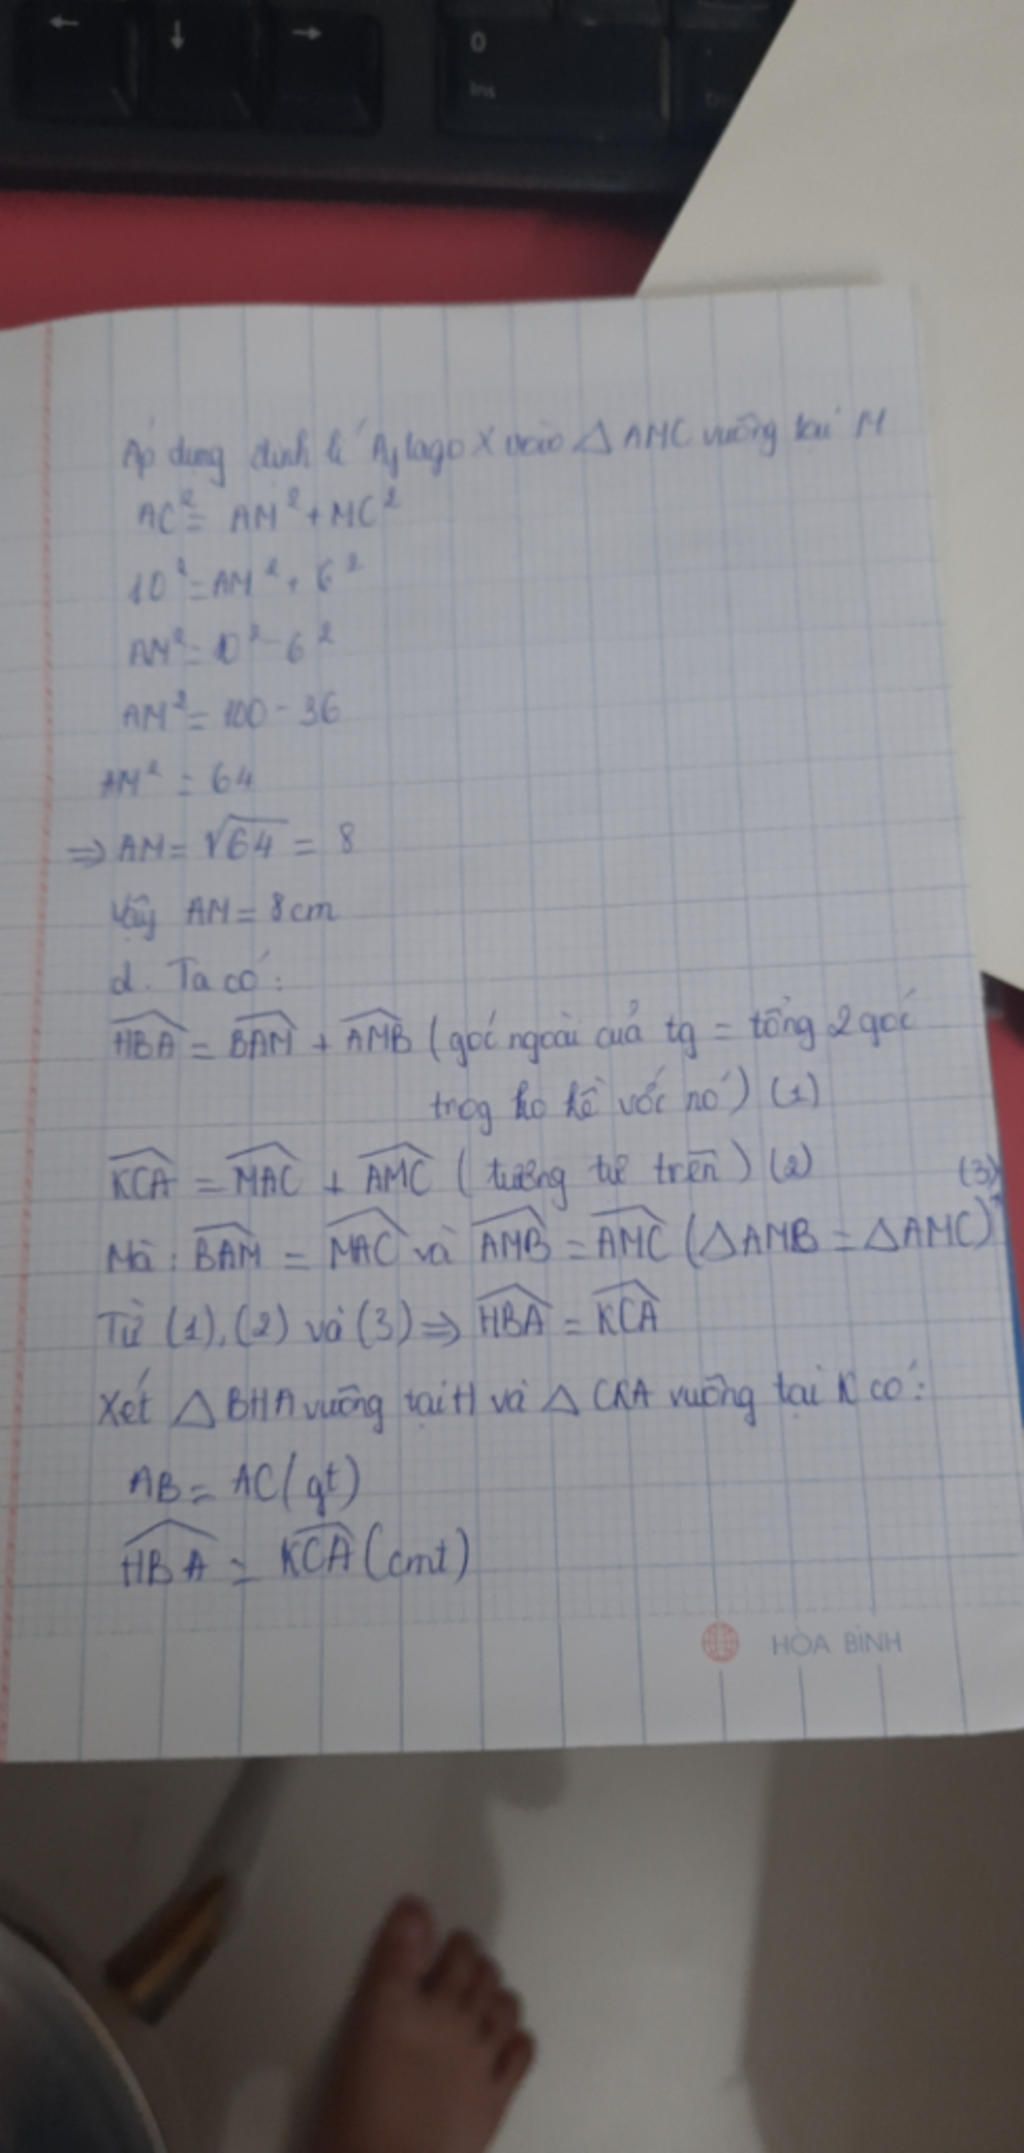 ←
↓
→
0
Ins
Áp dụng định lí Pytago X vào △ AMC vuông tại M
AC² = AM² + MC²
10² = AM² + 6²
AM² = 10² - 6²
AM² = 100 - 36
AM² = 64
⇒ AM = √64 = 8
Vậy AM = 8cm
d. Ta có:
HBA = BAM + AMB (góc ngoài của tg = tổng 2 góc
trog ko kề với nó) (1)
KCA = MAC + AMC (tương tự trên) (2)
(3)
Mà: BAM = MAC và AMB = AMC (△AMB = △AMC)
Từ (1), (2) và (3) ⇒ HBA = KCA
Xét △ BHA vuông tại H và △ CKA vuông tại K có:
AB = AC (gt)
HBA = KCA (cmt)
HÒA BÌNH